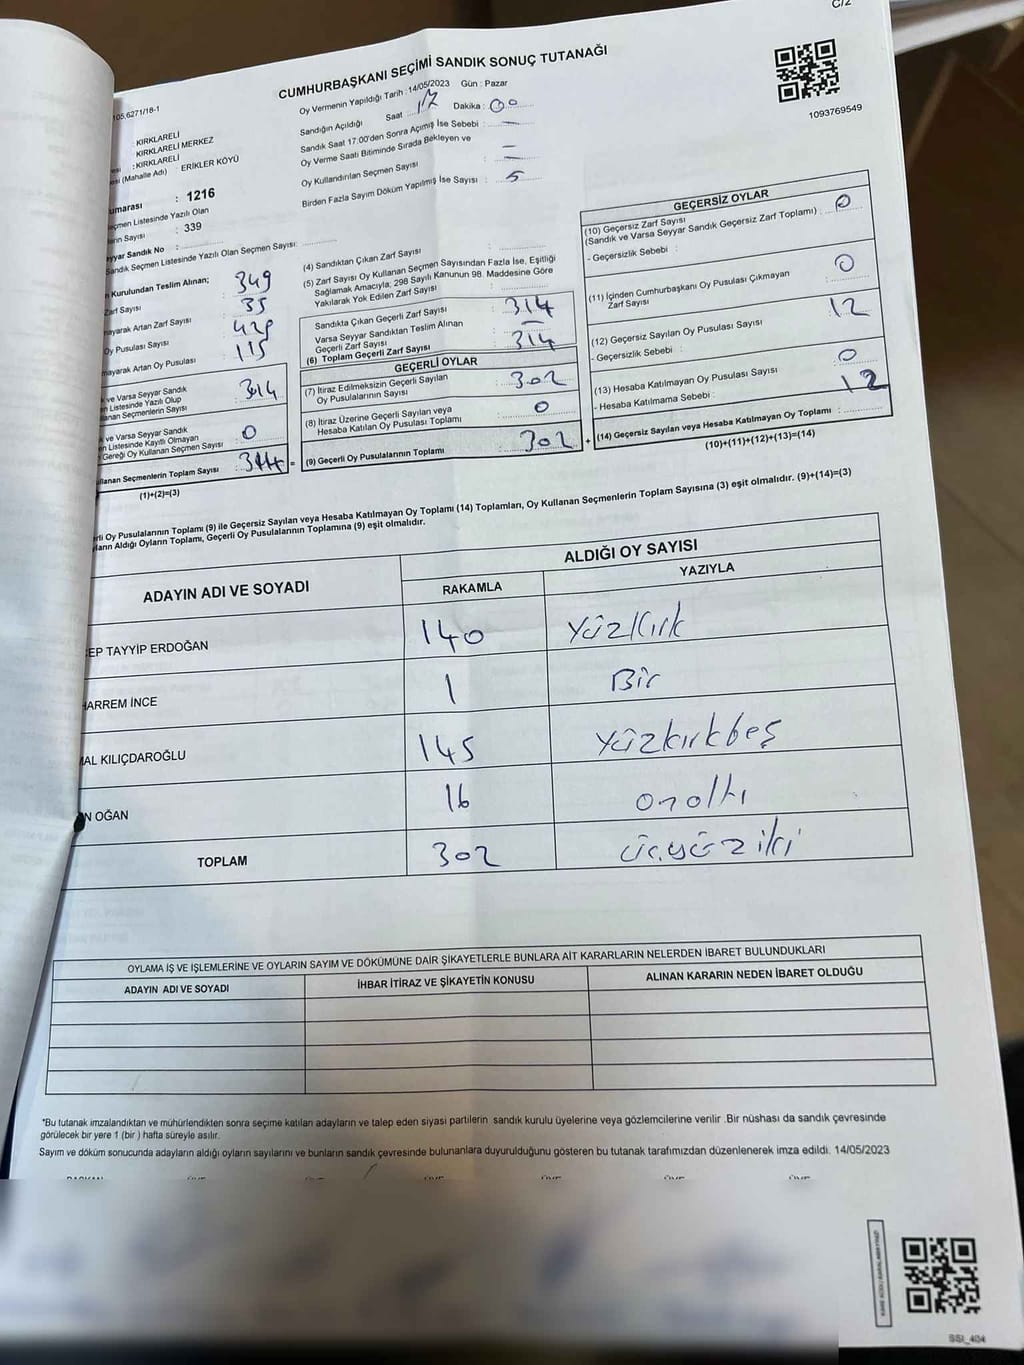 C/2
CUMHURBAŞKANI SEÇİMİ SANDIK SONUÇ TUTANAĞI
Oy Vermenin Yapıldığı Tarih : 14/05/2023 Gün : Pazar
Sandığın Açıldığı Saat : 17 Dakika : 00
Sandık Saat 17:00'den Sonra Açımış İse Sebebi : –
Oy Verme Saati Bitiminde Sırada Bekleyen ve
Oy Kullandırılan Seçmen Sayısı : –
Birden Fazla Sayım Döküm Yapılmış İse Sayısı : 5
1093769549
105.6271/18-1
KIRKLARELİ
KIRKLARELİ MERKEZ
: KIRKLARELİ
(Mahalle Adı) : ERİKLER KÖYÜ
umarası : 1216
eçmen Listesinde Yazılı Olan
Sayısı : 339
yyar Sandık No :
Sandık Seçmen Listesinde Yazılı Olan Seçmen Sayısı:
n Kurulundan Teslim Alınan;
Zarf Sayısı 349
mayarak Artan Zarf Sayısı 35
Oy Pusulası Sayısı 429
mayarak Artan Oy Pusulası 115
k ve Varsa Seyyar Sandık
n Listesinde Yazılı Olup
llanan Seçmenlerin Sayısı 314
k ve Varsa Seyyar Sandık
en Listesinde Kayıtlı Olmayan
Gereği Oy Kullanan Seçmen Sayısı 0
ullanan Seçmenlerin Toplam Sayısı : 314 =
(1)+(2)=(3)
(4) Sandıktan Çıkan Zarf Sayısı :
(5) Zarf Sayısı Oy Kullanan Seçmen Sayısından Fazla İse, Eşitliği
Sağlamak Amacıyla; 298 Sayılı Kanunun 98. Maddesine Göre
Yakılarak Yok Edilen Zarf Sayısı :
Sandıkta Çıkan Geçerli Zarf Sayısı : 314
Varsa Seyyar Sandıktan Teslim Alınan
Geçerli Zarf Sayısı : –
(6) Toplam Geçerli Zarf Sayısı : 314
GEÇERLİ OYLAR
(7) İtiraz Edilmeksizin Geçerli Sayılan
Oy Pusulalarının Sayısı : 302
(8) İtiraz Üzerine Geçerli Sayılan veya
Hesaba Katılan Oy Pusulası Toplamı : 0
(9) Geçerli Oy Pusulalarının Toplamı : 302 +
GEÇERSİZ OYLAR
(10) Geçersiz Zarf Sayısı
(Sandık ve Varsa Seyyar Sandık Geçersiz Zarf Toplamı) : 0
- Geçersizlik Sebebi :
(11) İçinden Cumhurbaşkanı Oy Pusulası Çıkmayan
Zarf Sayısı : 0
(12) Geçersiz Sayılan Oy Pusulası Sayısı : 12
- Geçersizlik Sebebi :
(13) Hesaba Katılmayan Oy Pusulası Sayısı : 0
- Hesaba Katılmama Sebebi :
(14) Geçersiz Sayılan veya Hesaba Katılmayan Oy Toplamı : 12
(10)+(11)+(12)+(13)=(14)
rli Oy Pusulalarının Toplamı (9) ile Geçersiz Sayılan veya Hesaba Katılmayan Oy Toplamı (14) Toplamları, Oy Kullanan Seçmenlerin Toplam Sayısına (3) eşit olmalıdır. (9)+(14)=(3)
ların Aldığı Oyların Toplamı, Geçerli Oy Pusulalarının Toplamına (9) eşit olmalıdır.
ADAYIN ADI VE SOYADI ALDIĞI OY SAYISI
RAKAMLA YAZIYLA
EP TAYYİP ERDOĞAN 140 Yüzkırk
HARREM İNCE 1 Bir
AL KILIÇDAROĞLU 145 Yüzkırkbeş
N OĞAN 16 onaltı
TOPLAM 302 üçyüziki
OYLAMA İŞ VE İŞLEMLERİNE VE OYLARIN SAYIM VE DÖKÜMÜNE DAİR ŞİKAYETLERLE BUNLARA AİT KARARLARIN NELERDEN İBARET BULUNDUKLARI
ADAYIN ADI VE SOYADI İHBAR İTİRAZ VE ŞİKAYETİN KONUSU ALINAN KARARIN NEDEN İBARET OLDUĞU
*Bu tutanak imzalandıktan ve mühürlendikten sonra seçime katılan adayların ve talep eden siyasi partilerin sandık kurulu üyelerine veya gözlemcilerine verilir .Bir nüshası da sandık çevresinde
görülecek bir yere 1 (bir ) hafta süreyle asılır.
Sayım ve döküm sonucunda adayların aldığı oyların sayılarını ve bunların sandık çevresinde bulunanlara duyurulduğunu gösteren bu tutanak tarafımızdan düzenlenerek imza edildi. 14/05/2023
SSI_404